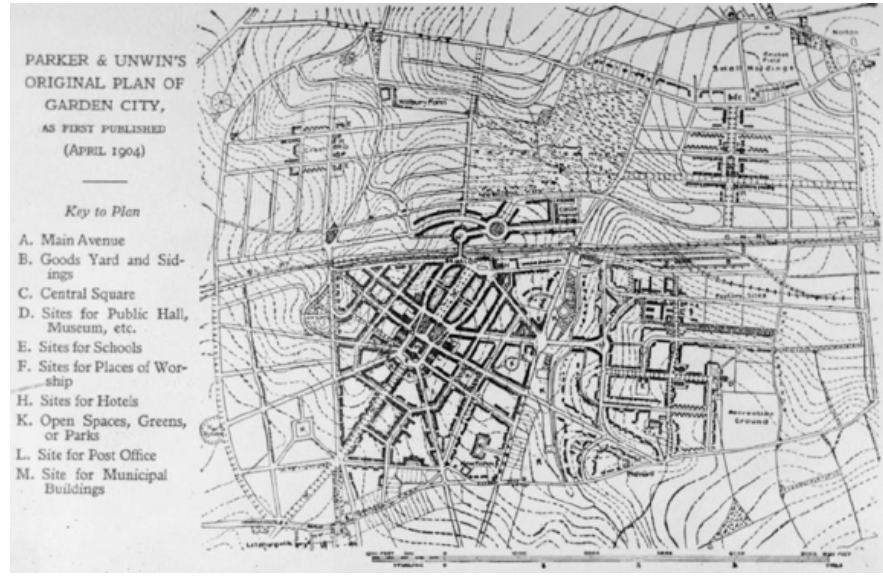 PARKER & UNWIN'S
ORIGINAL PLAN OF
GARDEN CITY,
AS FIRST PUBLISHED
(APRIL 1904)
Key to Plan
A. Main Avenue
B. Goods Yard and Sid-
ings
C. Central Square
D. Sites for Public Hall,
Museum, etc.
E. Sites for Schools
F. Sites for Places of Wor-
ship
H. Sites for Hotels
K. Open Spaces, Greens,
or Parks
L. Site for Post Office
M. Site for Municipal
Buildings
Norton
Small Holdings
Factory Sites
Recreation
Ground